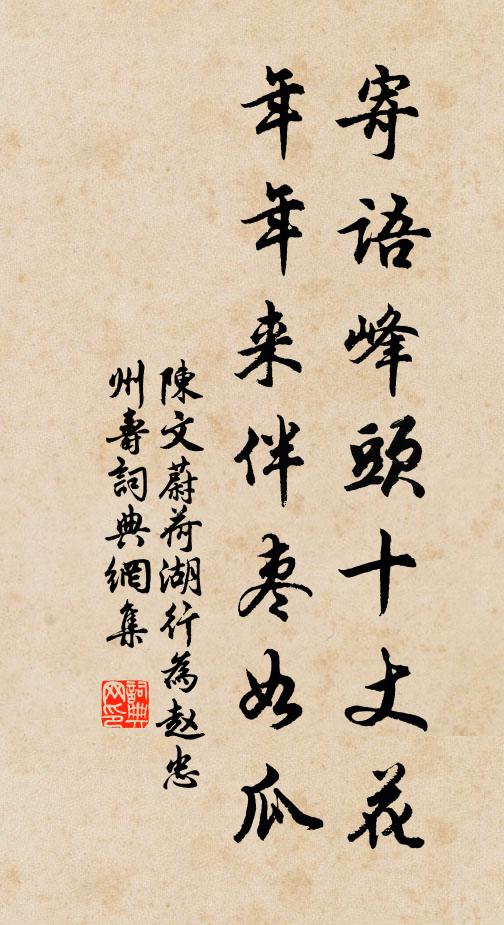 寄語峰頭十丈花
年年来伴枣如瓜
陳文蔚荷湖行為赵忠
州壽詞典網集
詞典网印